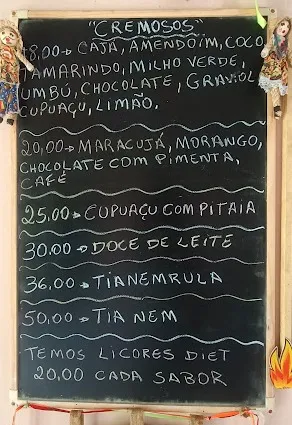 "CREMOSOS"
18,00→ CAJÁ, AMENDOÍM, COCO
TAMARINDO, MILHO VERDE,
UMBÚ, CHOCOLATE, GRAVIOL
CUPUAÇU, LIMÃO.
20,00→ MARACUJÁ, MORANGO,
CHOCOLATE COM PIMENTA,
CAFÉ
25.00→ CUPUAÇU COM PITAIA
30.00→ DOCE DE LEITE
36,00→ TIANEMRULA
50,00→ TIA NEM
TEMOS LICORES DIET
20,00 CADA SABOR